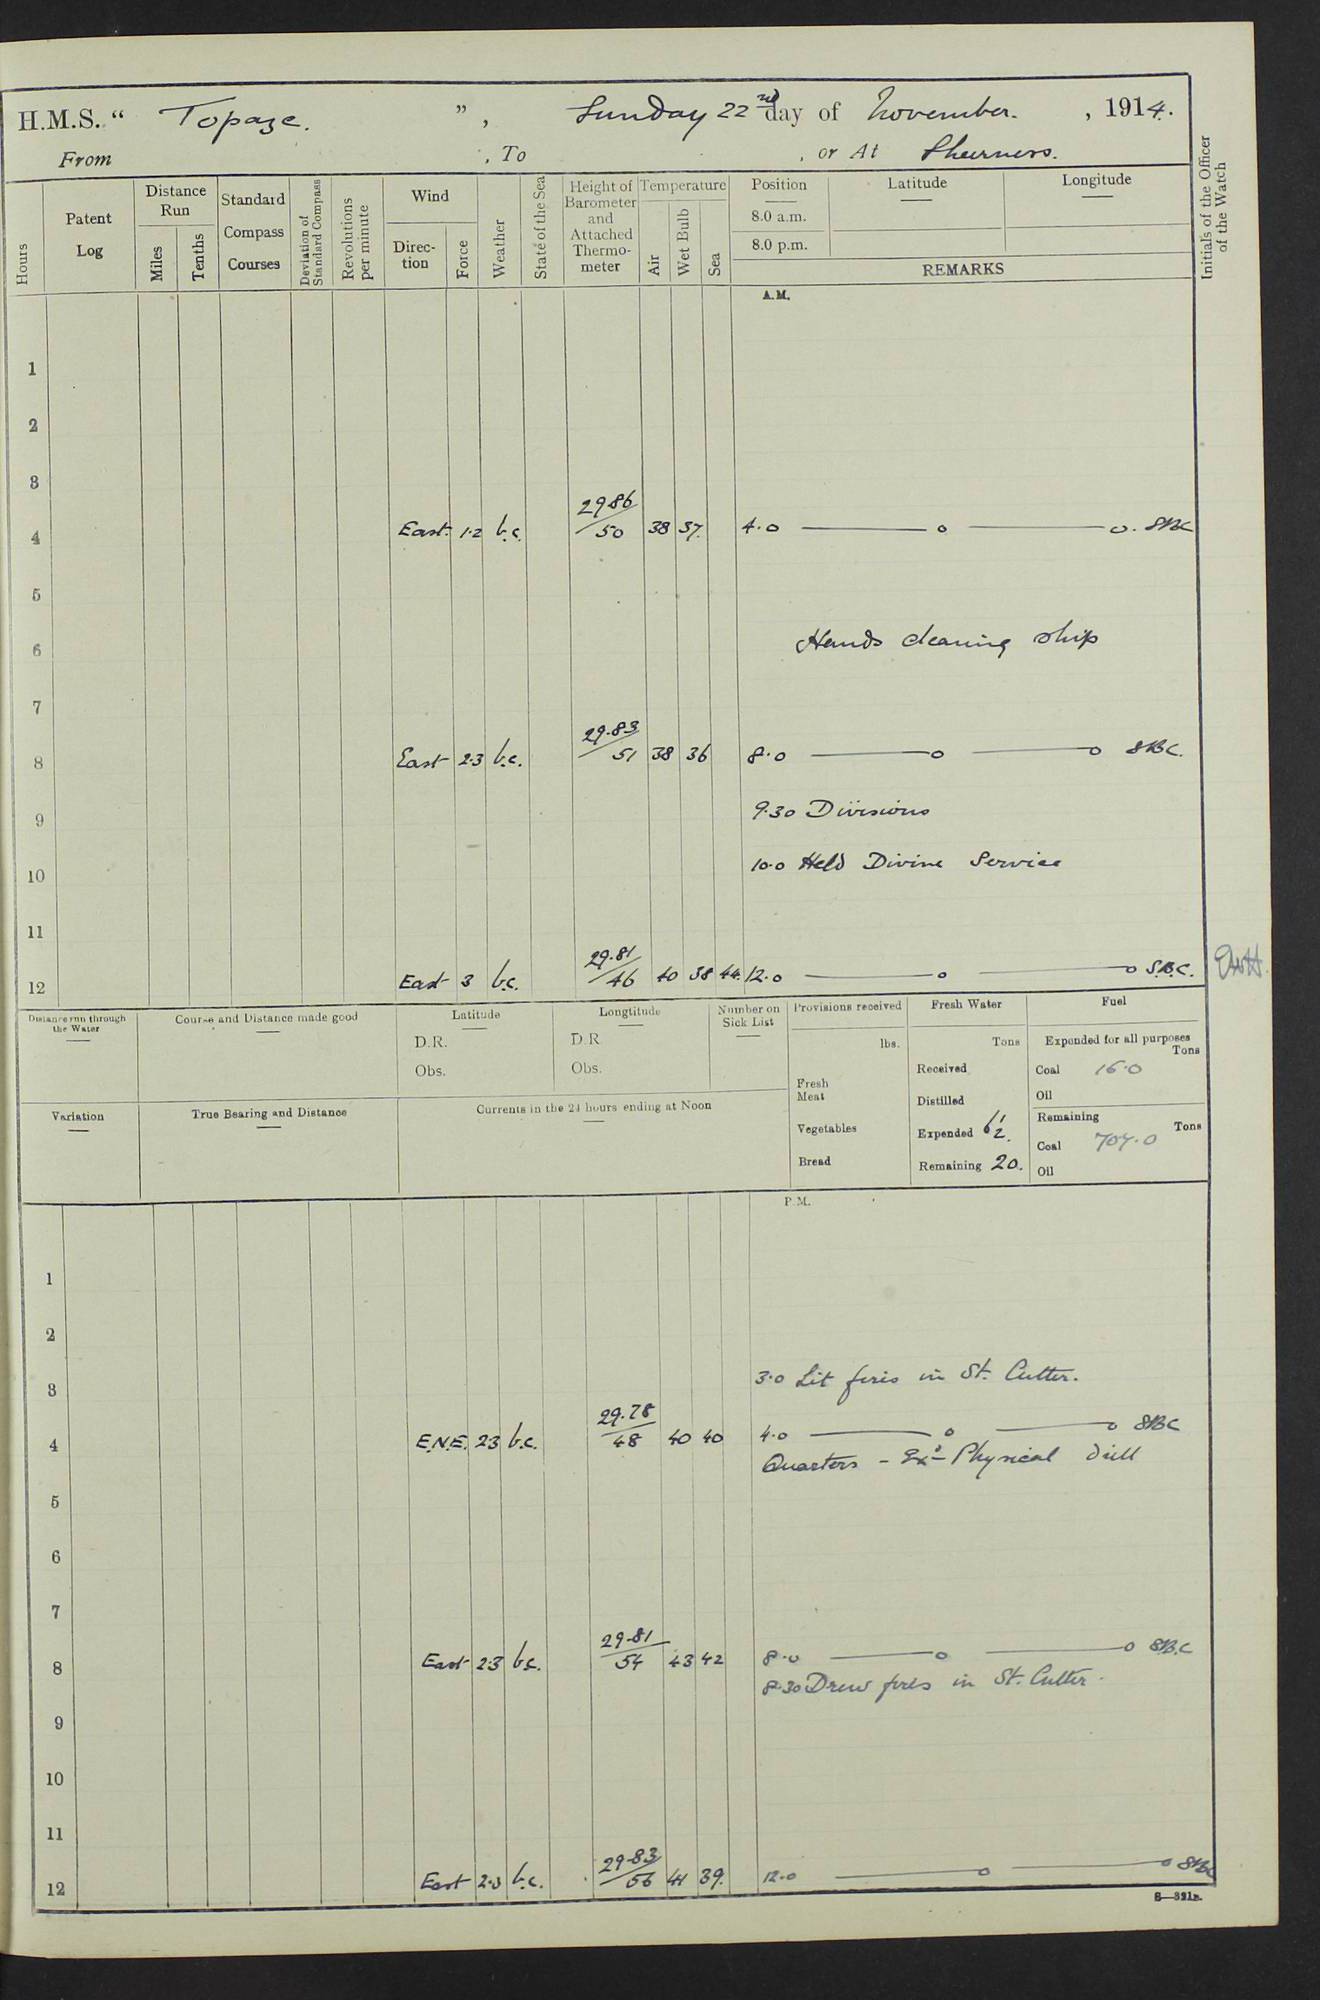 H.M.S. “ Topaze. ”, Sunday 22nd day of November. , 1914.
From , To , or At Sheerness.
Hours
Patent Log
Distance Run
Miles
Tenths
Standard Compass Courses
Deviation of Standard Compass
Revolutions per minute
Wind
Direc-tion
Force
Weather
State of the Sea
Height of Barometer and Attached Thermo-meter
Temperature
Air
Wet Bulb
Sea
Position
8.0 a.m.
8.0 p.m.
Latitude
Longitude
REMARKS
Initials of the Officer of the Watch
A.M.
1
2
3
4 East. 1·2 b.c. 29.86/50 38 37. 4.0 — o — o. SBC
5
6 Hands cleaning ship
7
8 East 2·3 b.c. 29.83/51 38 36 8.0 — o — o SBC.
9 9.30 Divisions
10 10.0 Held Divine Service
11
12 East 3 b.c. 29.81/46 40 38 44. 12.0 — o — o S.B.C.
Distance run through the Water
Course and Distance made good
Latitude
D.R.
Obs.
Longtitude
D.R.
Obs.
Number on Sick List
Provisions received
lbs.
Fresh Meat
Vegetables
Bread
Fresh Water
Tons
Received
Distilled
Expended 6½.
Remaining 20.
Fuel
Expended for all purposes
Tons
Coal 16.0
Oil
Remaining
Tons
Coal 707.0
Oil
Variation
True Bearing and Distance
Currents in the 24 hours ending at Noon
P.M.
1
2
3 3.0 Lit fires in St. Cutter.
4 E.N.E. 2·3 b.c. 29.78/48 40 40 4.0 — o — o SBC
Quarters - Exd - Physical drill
5
6
7
8 East 2·3 b.c. 29.81/54 43 42 8.0 — o — o SBC
8.30 Drew fires in St. Cutter.
9
10
11
12 East 2·3 b.c. 29.83/56 41 39. 12.0 — o — o SBC
S—321B.